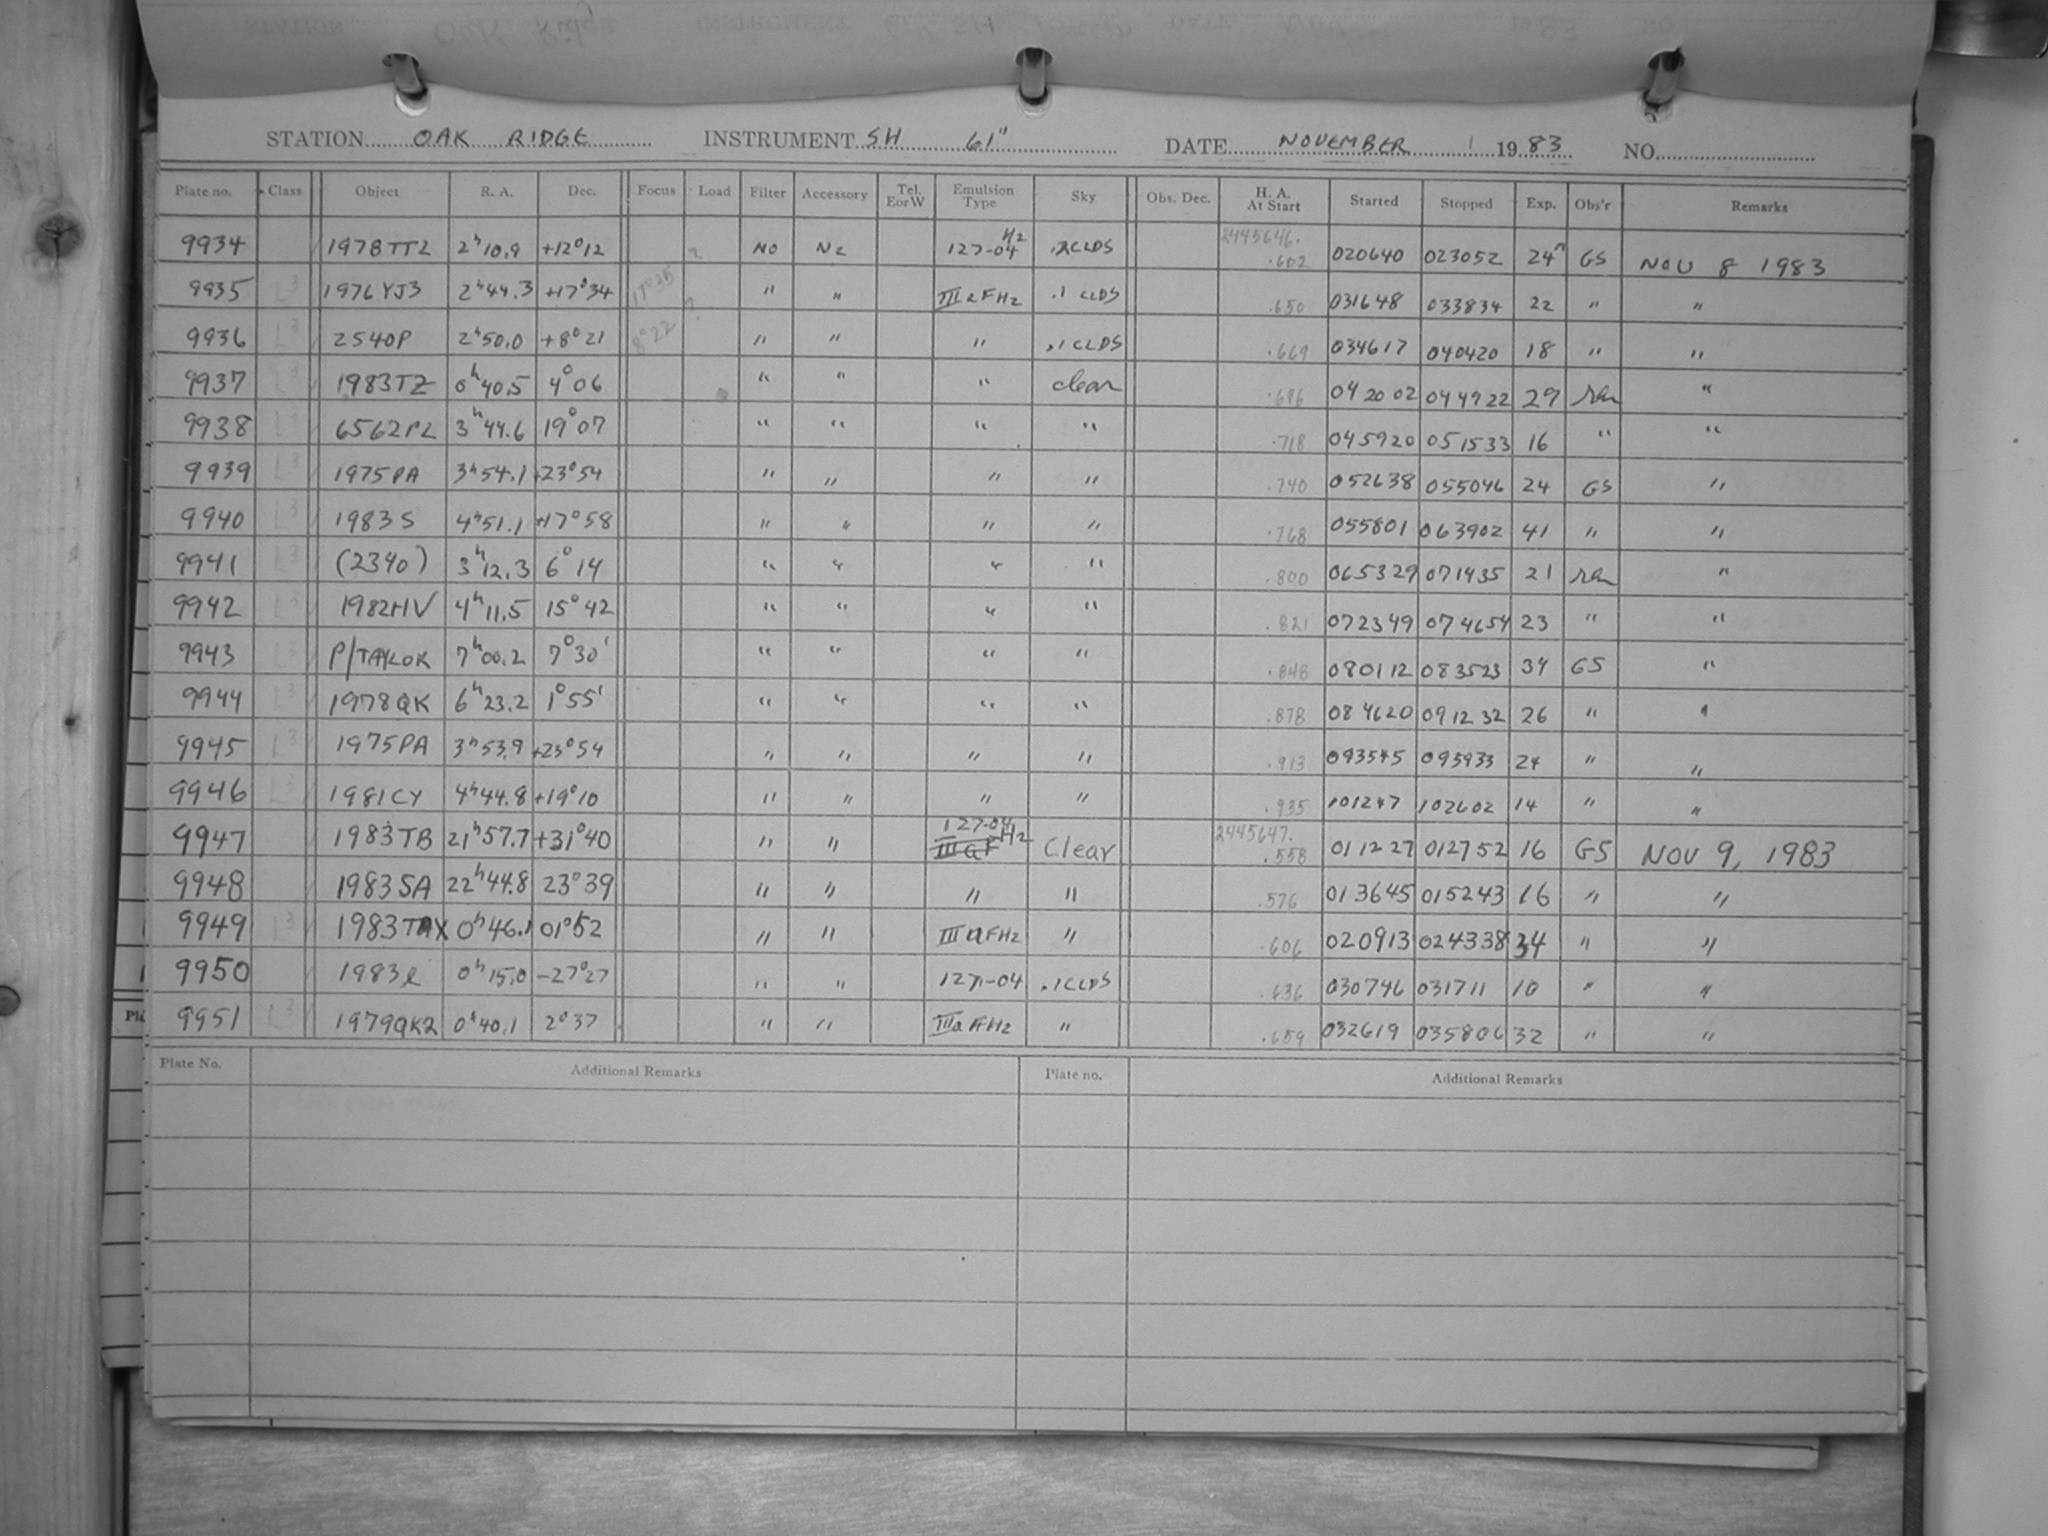 STATION OAK RIDGE INSTRUMENT SH 61" DATE NOVEMBER 1983 NO.
Plate no. Class Object R. A. Dec. Focus Load Filter Accessory Tel. EorW Emulsion Type Sky Obs. Dec. H. A. At Start Started Stopped Exp. Obs'r Remarks
9934 1978TT2 2h10.9 +12°12 ? NO N2 127-04 H2 .2CLDS 2445646. .602 020640 023052 24m GS NOV 8 1983
9935 L3 1976YJ3 2h44.3 +17°34 17°35 ? " " IIIaFH2 .1 CLDS .650 031648 033834 22 " "
9936 L3 2540P 2h50.0 +8°21 8°22 " " " .1CLDS .669 034617 040420 18 " "
9937 L3 1983TZ 0h40.5 4°06 " " " clear .696 042002 044922 29 "
9938 L3 6562PL 3h44.6 19°07 " " " " .718 045920 051533 16 " "
9939 L3 1975PA 3h54.1 +23°54 " " " " .740 052638 055046 24 GS "
9940 L3 1983S 4h51.1 +17°58 " " " " .768 055801 063902 41 " "
9941 L3 (2340) 3h12.3 6°14 " " " " .800 065329 071435 21 "
9942 L3 1982HV 4h11.5 15°42 " " " " .821 072349 074654 23 " "
9943 L3 P/TAYLOR 7h00.2 7°30' " " " " .848 080112 083523 34 GS "
9944 L3 1978QK 6h23.2 1°55' " " " " .878 084620 091232 26 " "
9945 L3 1975PA 3h53.9 +23°54 " " " " .913 093545 095933 24 " "
9946 L3 1981CY 4h44.8 +19°10 " " " " .935 101247 102602 14 " "
9947 1983TB 21h57.7 +31°40 " " 127-04 IIIaF H2 Clear 2445647. .558 011227 012752 16 GS NOV 9, 1983
9948 1983SA 22h44.8 23°39 " " " " .576 013645 015243 16 " "
9949 L3 1983TAX 0h46.1 01°52 " " IIIaFH2 " .606 020913 024338 34 " "
9950 0h15.0 -27°27 " " 127-04 .1CLDS .636 030746 031711 10 " "
9951 L3 1979QK2 0h40.1 2°37 " " IIIaFH2 " .659 032619 035806 32 " "
Plate No. Additional Remarks Plate no. Additional Remarks